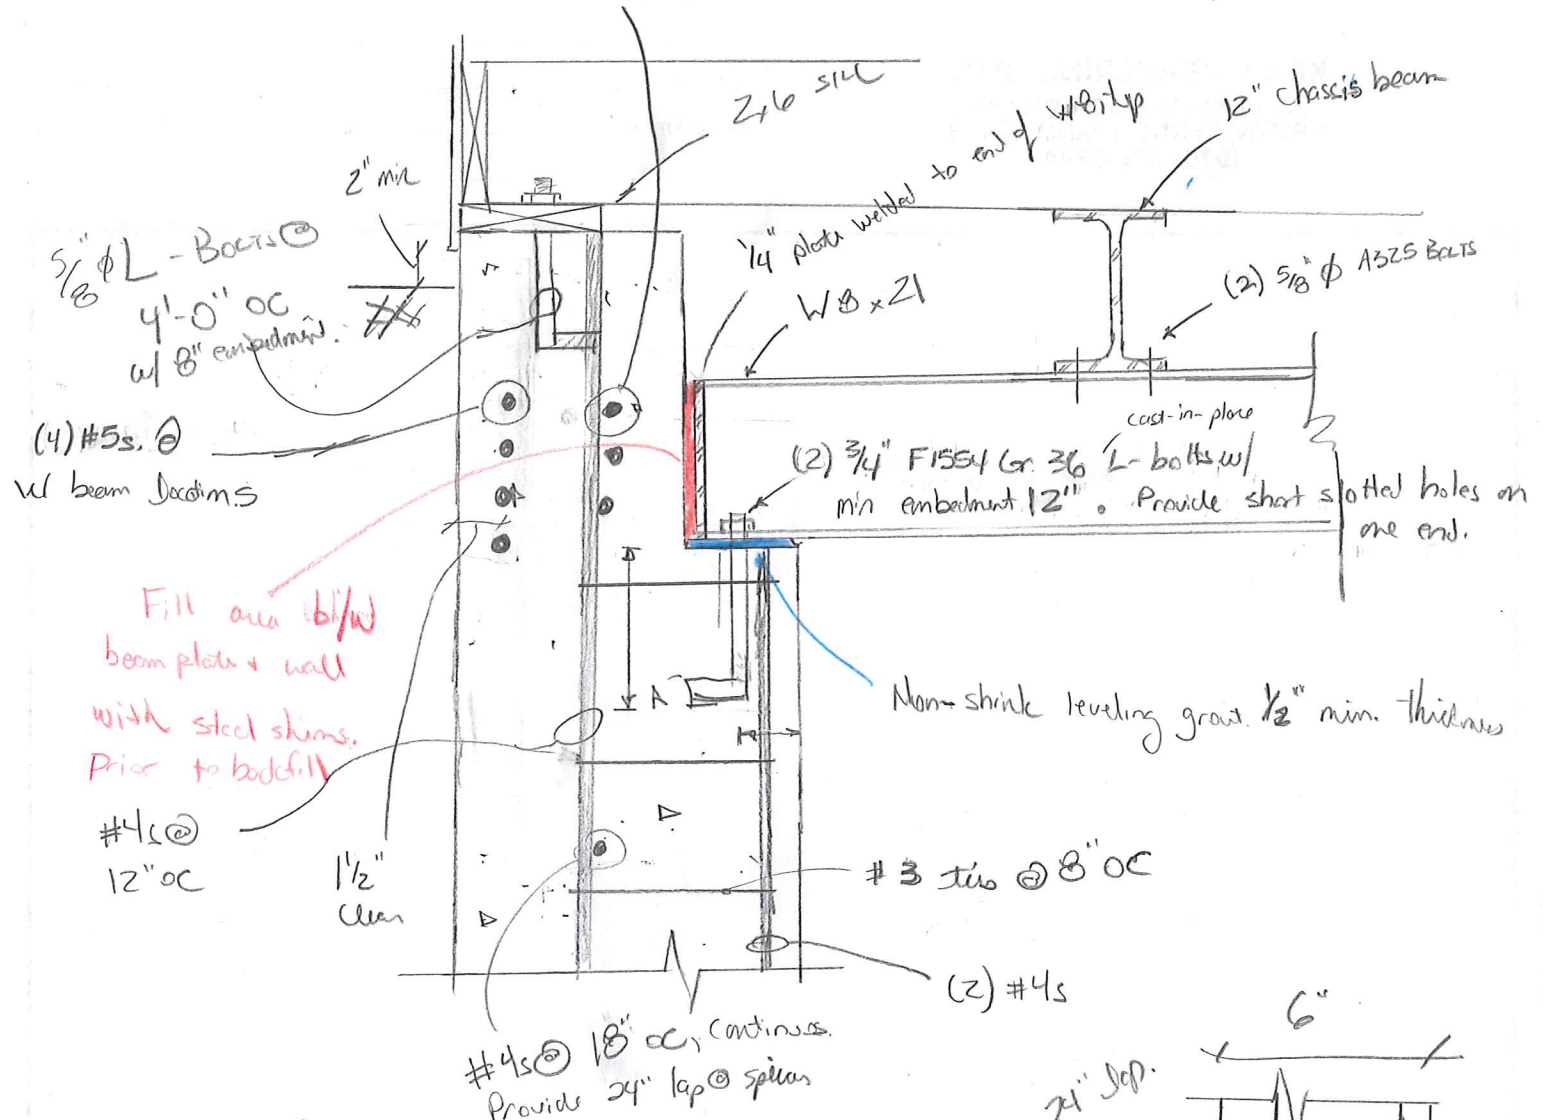 2x6 sill
12" chassis beam
2" min
1/4" plate welded to end of W8, typ
5/8" Φ L-Bolts @
4'-0" OC
w/ 8" embedment.
W8 x 21
(2) 5/8" Φ A325 Bolts
(4) #5s. @
w/ beam locations
cast-in-place
(2) 3/4" F1554 Gr. 36 L-bolts w/
min embedment 12". Provide short slotted holes on
one end.
Fill area bt/w
beam plate + wall
with steel shims.
Prior to backfill
A
Non-shrink leveling grout. 1/2" min. thickness
#4s @
12" OC
1 1/2"
Clear
#3 ties @ 8" OC
(2) #4s
#4s @ 18" OC, continuos.
Provide 24" lap @ splices
6"
24" lap.